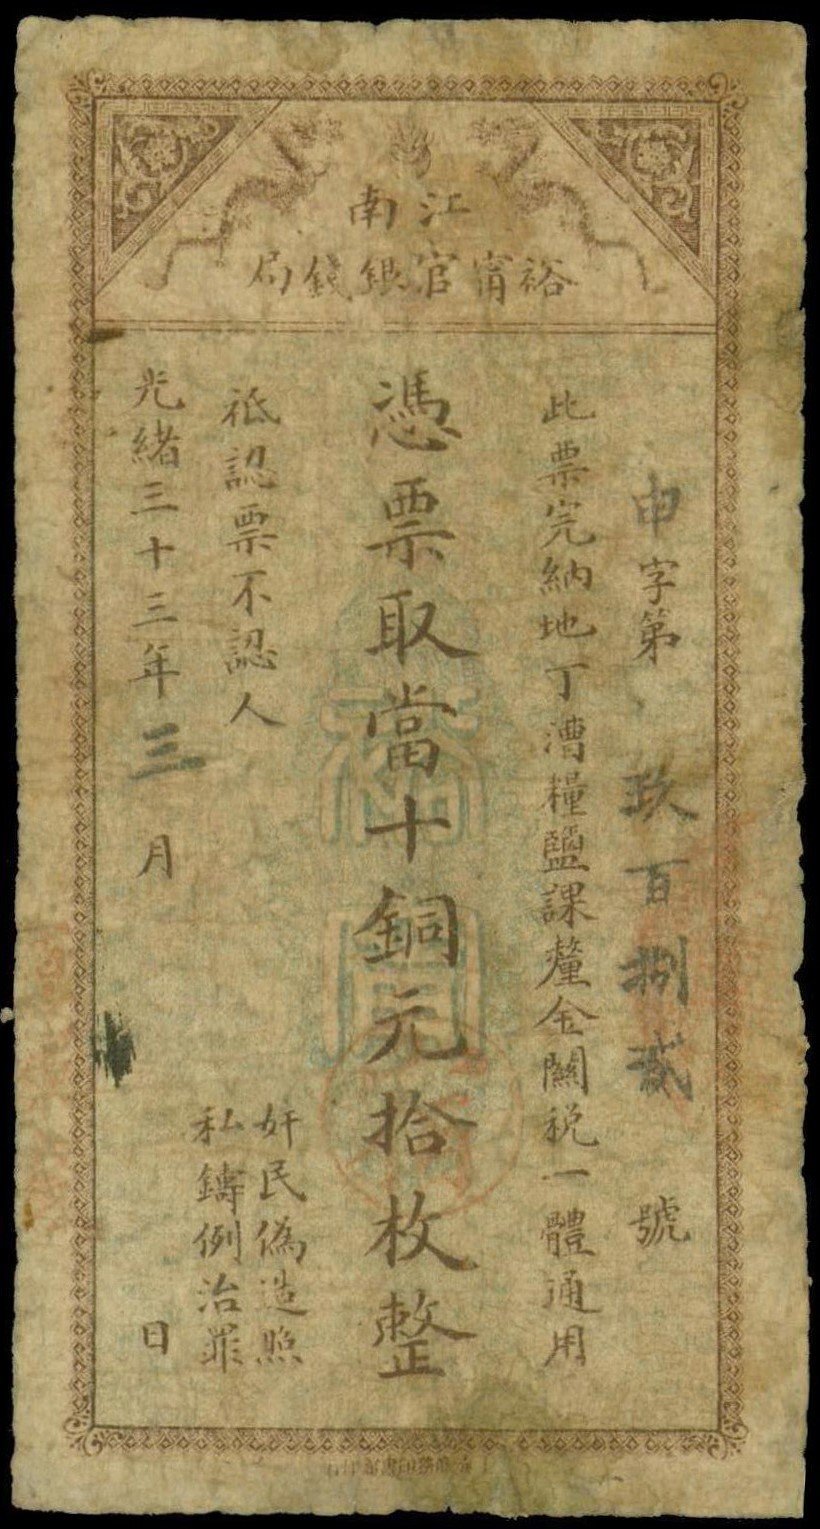 江南
裕甯官銀錢局
申字第玖百捌貳號
此票完納地丁漕糧鹽課釐金關稅一體通用
憑票取當十銅元拾枚整
祗認票不認人
奸民偽造照
私鑄例治罪
光緒三十三年三月日